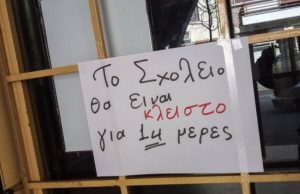 Το Σχολείο
θα ειναι
κλειστο
για 14 μερες